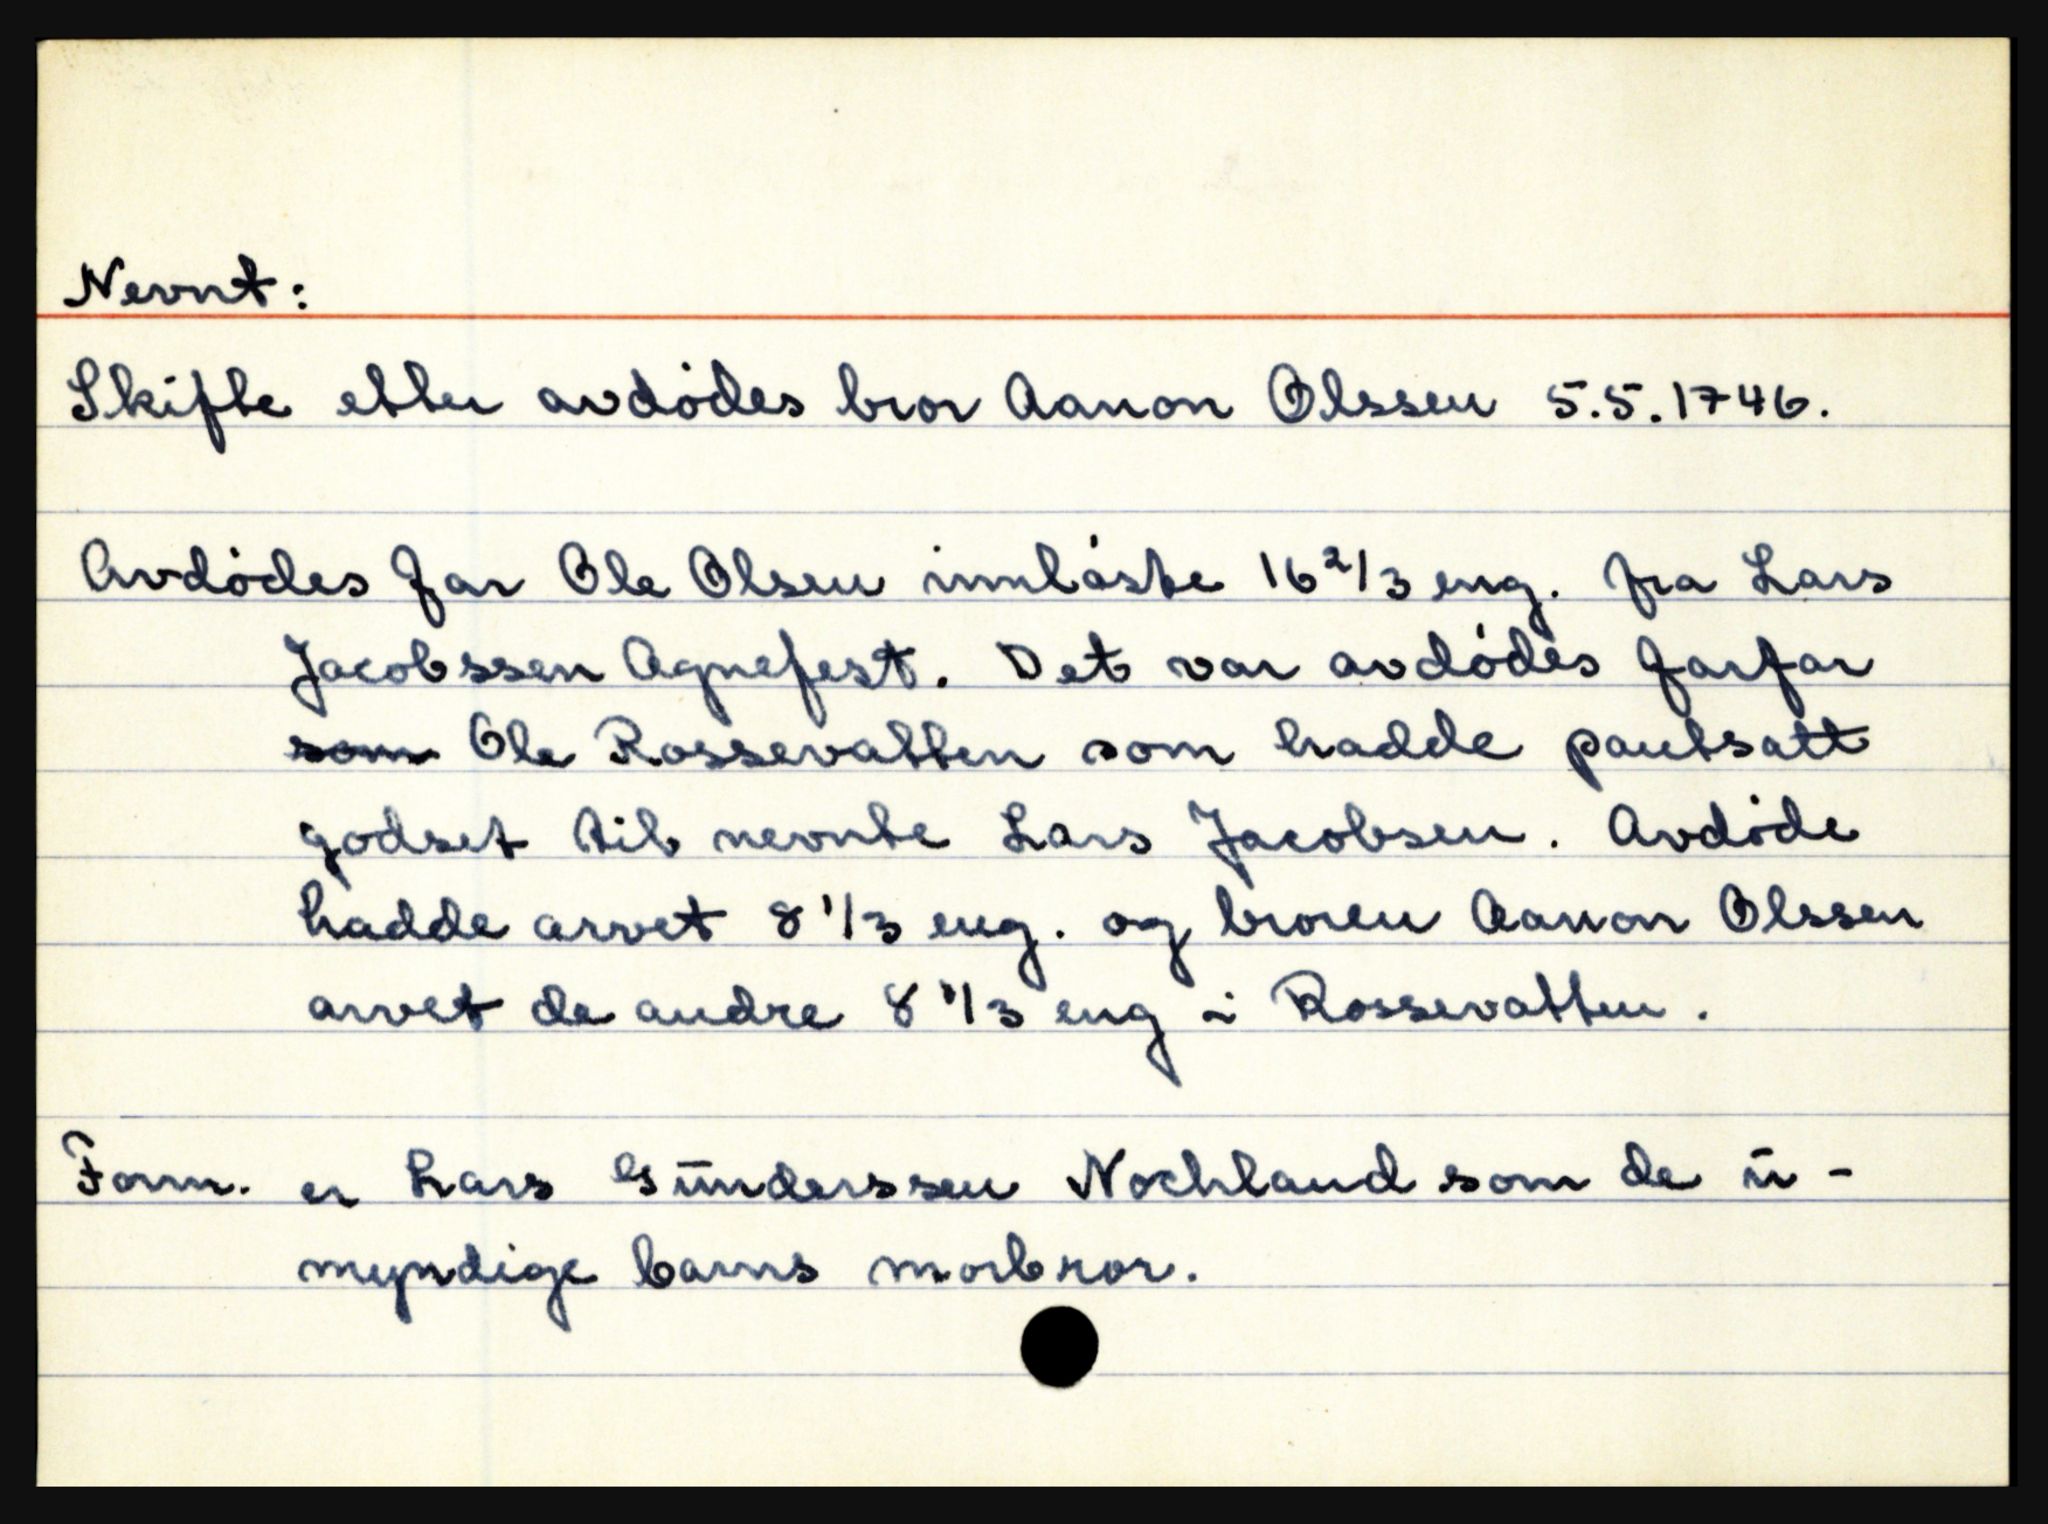 Nevnt:
Skifte etter avdødes bror Aanon Olssen 5.5.1746.
Avdødes far Ole Olsen innløste 16 2/3 eng. fra Lars
Jacobssen Agnefest. Det var avdødes farfar
som Ole Rossevatten som hadde pantsatt
godset til nevnte Lars Jacobsen. Avdøde
hadde arvet 8 1/3 eng. og broren Aanon Olssen
arvet de andre 8 1/3 eng i Rossevatten.
Form. er Lars Gūnderssen Nochland som de ū-
myndige barns morbror.